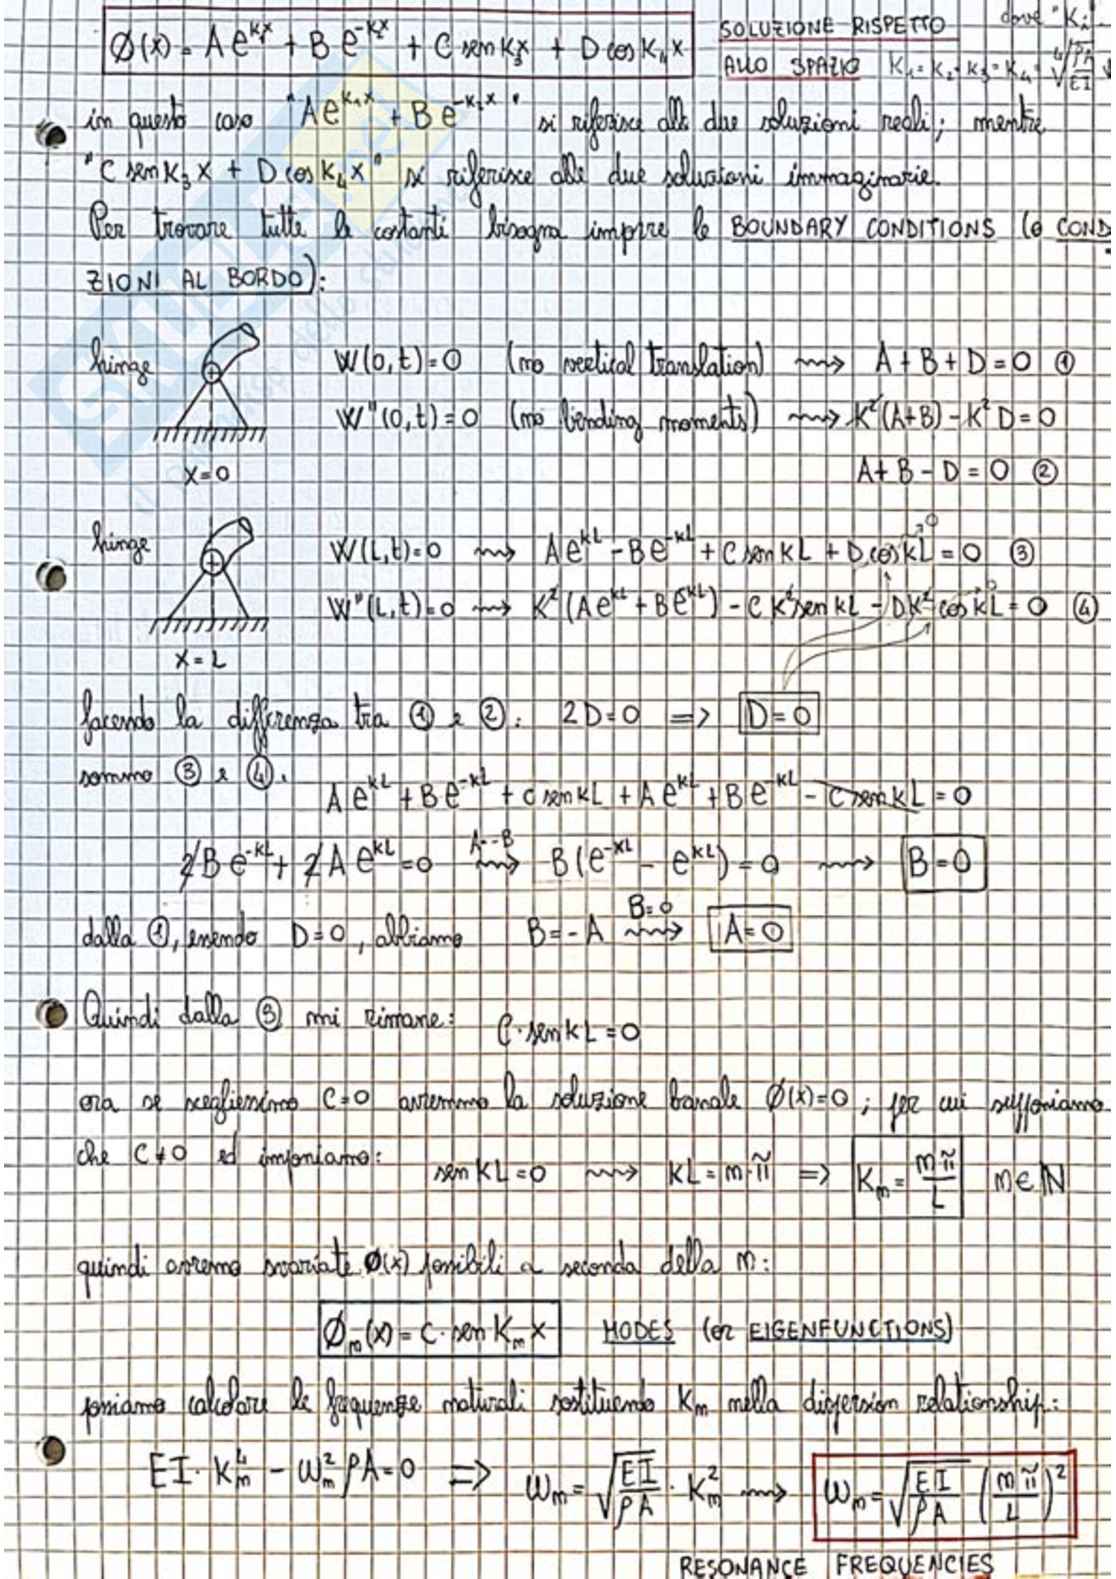 Ø(x) = A e^{k₁x} + B e^{-k₂x} + C sen k₃x + D cos k₄x
SOLUZIONE RISPETTO ALLO SPAZIO
dove "Kᵢ"
K₁ = K₂ = K₃ = K₄ =
in questo caso "A e^{k₁x} + B e^{-k₂x}" si riferisce alle due soluzioni reali; mentre
"C sen K₃x + D cos K₄x" si riferisce alle due soluzioni immaginarie.
Per trovare tutte le costanti bisogna imporre le BOUNDARY CONDITIONS (o COND
ZIONI AL BORDO):
hinge
W(0,t)=0 (no vertical translation) ⇝ A + B + D = 0 ①
W"(0,t)=0 (no bending moments) ⇝ K²(A+B) - K² D = 0
X=0
A + B - D = 0 ②
hinge
W(L,t)=0 ⇝ A e^{kL} - B e^{-kL} + C sen kL + D cos kL = 0 ③
W"(L,t)=0 ⇝ K² (A e^{kL} + B e^{-kL}) - C K² sen kL - D K² cos kL = 0 ④
X = L
facendo la differenza tra ① e ②: 2D=0 => D=0
sommo ③ e ④.
A e^{kL} + B e^{-kL} + C sen kL + A e^{kL} + B e^{-kL} - C sen kL = 0
2B e^{-kL} + 2A e^{kL} = 0 A=-B ⇝ B (e^{-kL} - e^{kL}) = 0 ⇝ B=0
dalla ①, essendo D=0, abbiamo B=-A B=0 ⇝ A=0
Quindi dalla ③ mi rimane: C·sen kL = 0
ora se scegliessimo C=0 avremmo la soluzione banale Ø(x)=0; per cui supponiamo
che C≠0 ed imponiamo: sen KL=0 ⇝ KL = m·π => Kₘ = mπ/L m∈ℕ
quindi avremo svariate Ø(x) possibili a seconda della m:
Øₘ(x) = C·sen Kₘ x MODES (or EIGENFUNCTIONS)
possiamo calcolare le frequenze naturali sostituendo Kₘ nella dispersion relationship:
EI·Kₘ⁴ - ωₘ² ρA = 0 => ωₘ = √(EI/ρA) · Kₘ² ⇝ ωₘ = √(EI/ρA) (mπ/L)²
RESONANCE FREQUENCIES